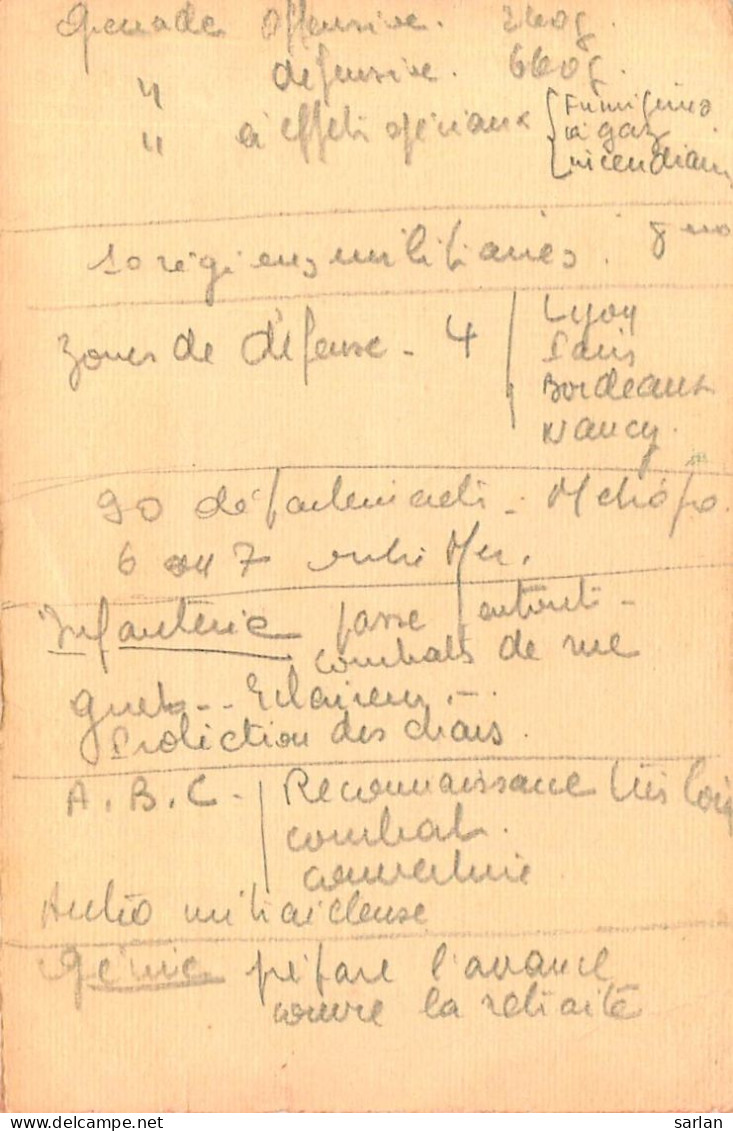 grenade offensive. 260g.
" défensive. 660g.
" à effets spéciaux { Fumigènes
à gaz
incendiaires
10 régions militaires.
Zones de défense - 4 | Lyon
Paris
Bordeaux
Nancy.
90 départements - Métropo.
6 ou 7 outre Mer.
Infanterie passe partout -
combats de rue
guet -- Eclaireur --.
Protection des chars.
A.B.C. - | Reconnaissance très loin
combat.
couverture
Auto mitrailleuse
Génie prépare l'avance
couvre la retraite
sarlan